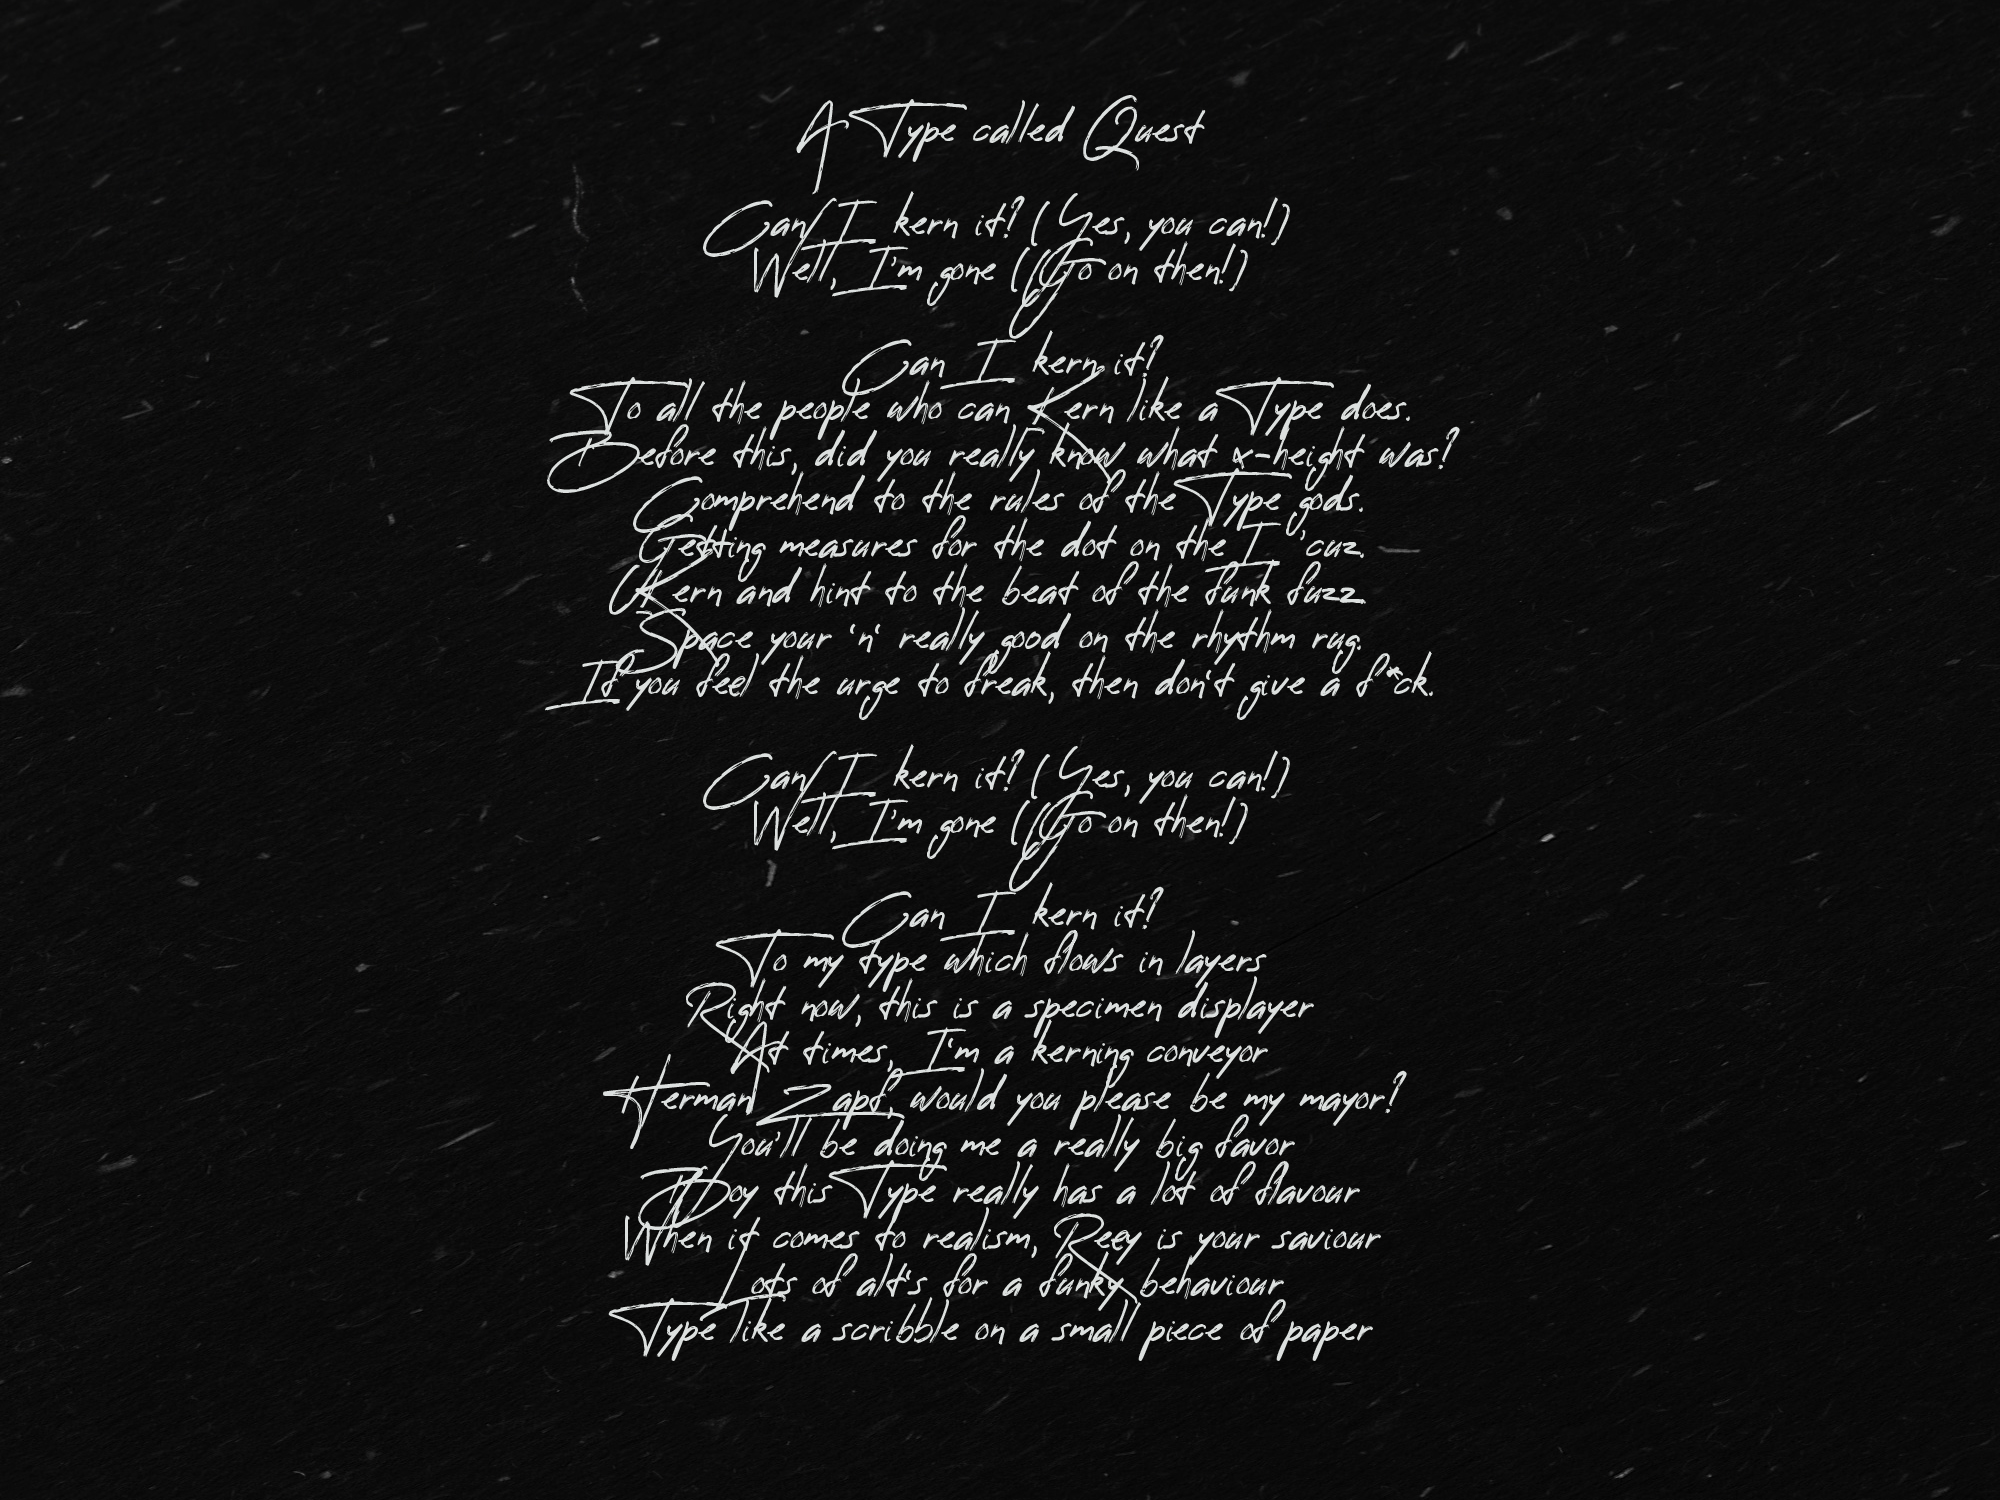 A Type called Quest
Can I kern it? (Yes, you can!)
Well, I'm gone (Go on then!)
Can I kern it?
To all the people who can Kern like a Type does.
Before this, did you really know what x-height was?
Comprehend to the rules of the Type gods.
Getting measures for the dot on the I 'cuz.
Kern and hint to the beat of the funk fuzz
Space your 'n' really good on the rhythm rug.
If you feel the urge to freak, then don't give a f*ck.
Can I kern it? (Yes, you can!)
Well, I'm gone (Go on then!)
Can I kern it?
To my type which flows in layers
Right now, this is a specimen displayer
At times, I'm a kerning conveyor
Herman Zapf, would you please be my mayor?
You'll be doing me a really big favor
Boy this Type really has a lot of flavour
When it comes to realism, Reey is your saviour
Lots of alt's for a funky behaviour
Type like a scribble on a small piece of paper